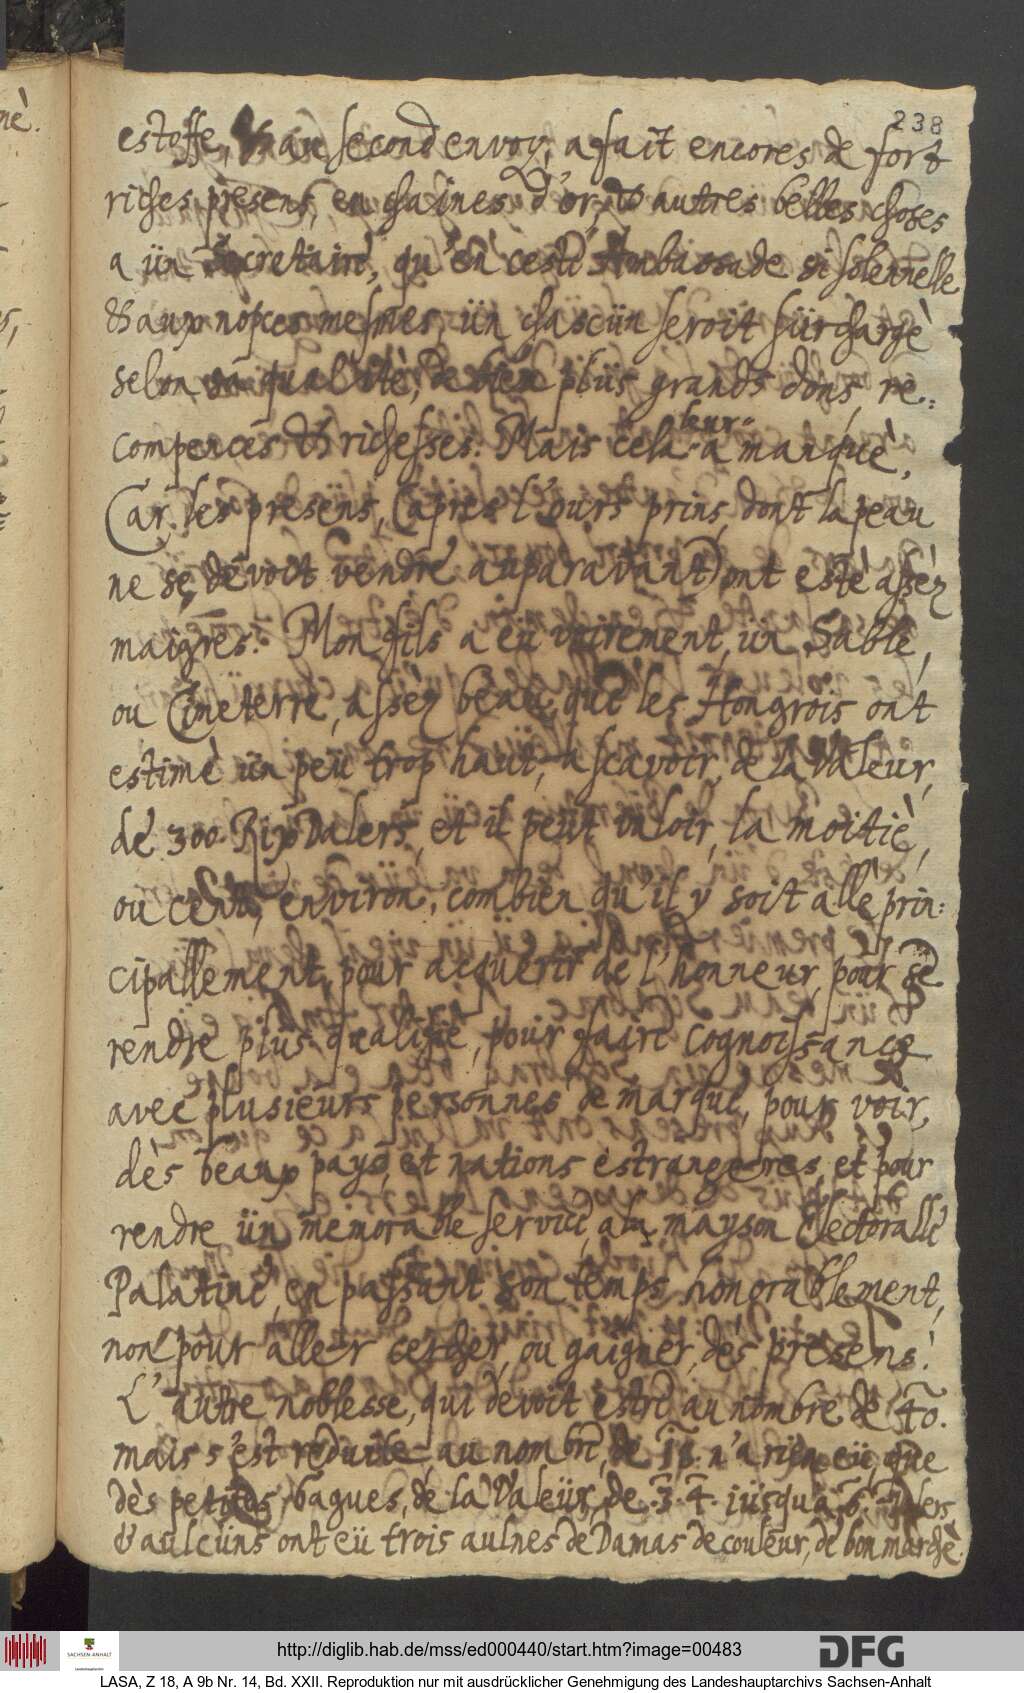 238
estoffe, & au second envoy, a fait encores de fort
riches presens, en chaines d'or, & autres belles choses
a ün Secretaire, qu'en ceste Ambassade si solennelle
& aux nopces mesmes, ün chascün seroit sürchargè
selon sa qualitè, de bien plüs grands dons, re=
compences & richesses. Mais cela leur a manquè,
Car, les presens, (apres l'ours prins, dont la peau
ne se devoit vendre auparavant) ont estè assèz
maigres. Mon fils a eü voirement, ün Sable,
ou Cimeterre, assèz beau, que les Hongrois ont
estimè ün peü trop haut, a scavoir, de la valeur,
de 300. RixDalers, et il peut valoir, la moitiè,
ou cent, environ, combien qu'il y soit allè prin=
cipallement, pour acquerir de l'honneur, pour se
rendre plus qualifiè, pour faire cognoissance
avec plusieurs personnes de marque, pour voir,
dès beaux pays, et nations èstrangeres, et pour
rendre ün memorable service, a la mayson Electoralle
Palatine, en passant son temps honorablement,
non pour aller cercher, ou gaigner, dès presens!
L'autre noblesse, qui devoit estre au nombre de 40.
mais s'est reduite au nombre, de 18. n'a rien eü, que
dès petites bagues, de la valeür, de 3. 4. jüsqu'a 6. Dalers
& aulcüns ont eü trois aulnes de Damas de couleur, de bon marchè.
nè.
http://diglib.hab.de/mss/ed000440/start.htm?image=00483
SACHSEN-ANHALT
Landeshauptarchiv
DFG
LASA, Z 18, A 9b Nr. 14, Bd. XXII. Reproduktion nur mit ausdrücklicher Genehmigung des Landeshauptarchivs Sachsen-Anhalt